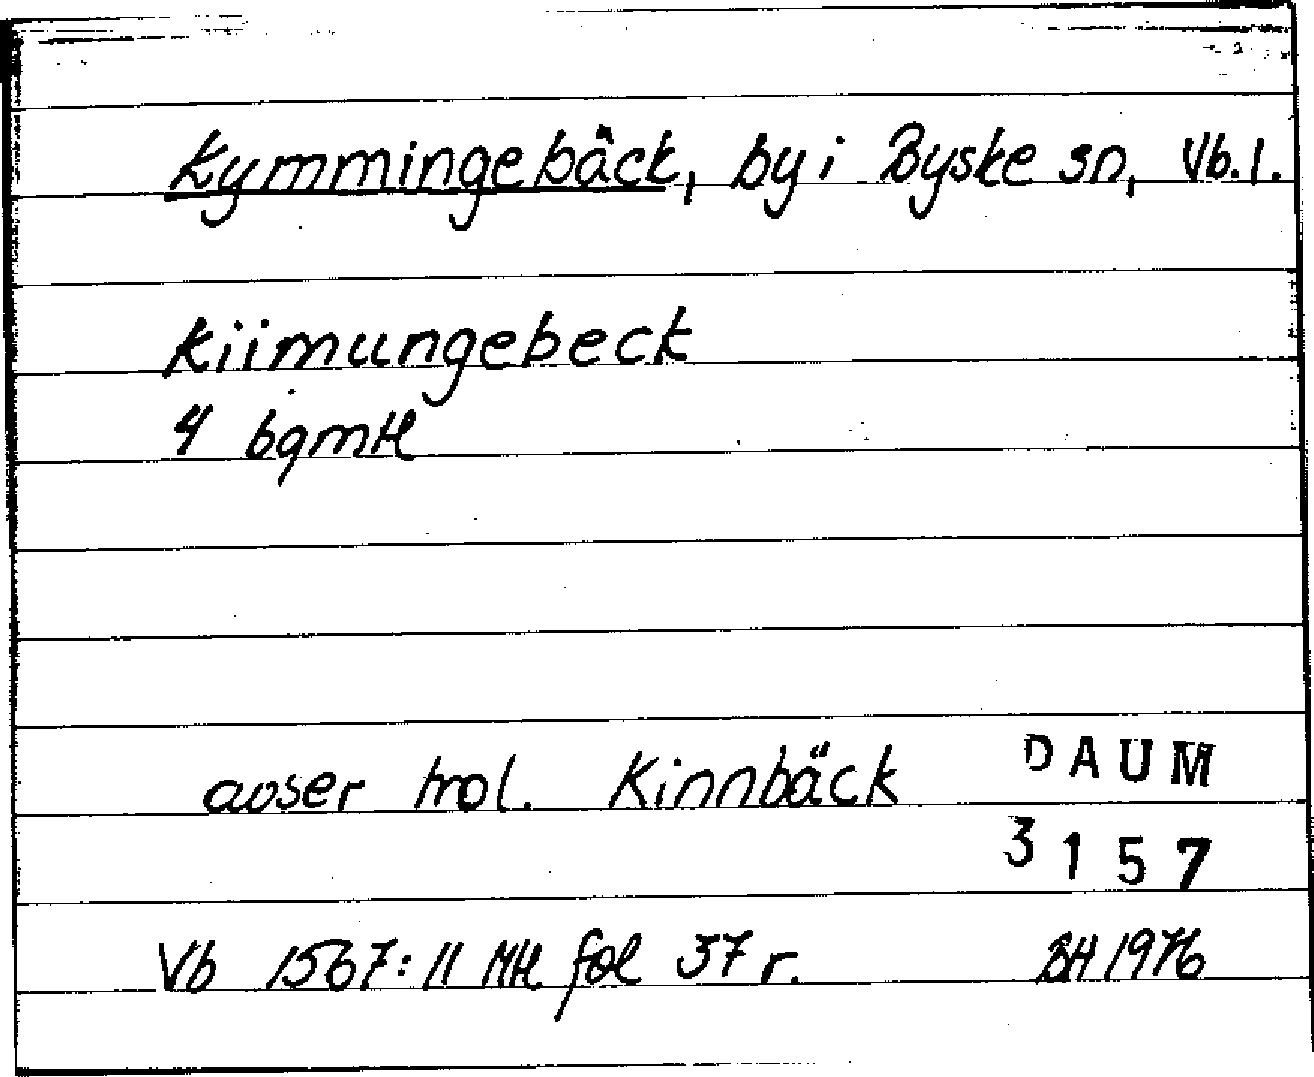 Kymmingebäck, by i Byske sn, Vb. l.
Kiimungebeck
4 bgmtl
avser trol. Kinnbäck
DAUM
3157
Vb 1567:11 Mtl fol 37 r. BH 1976